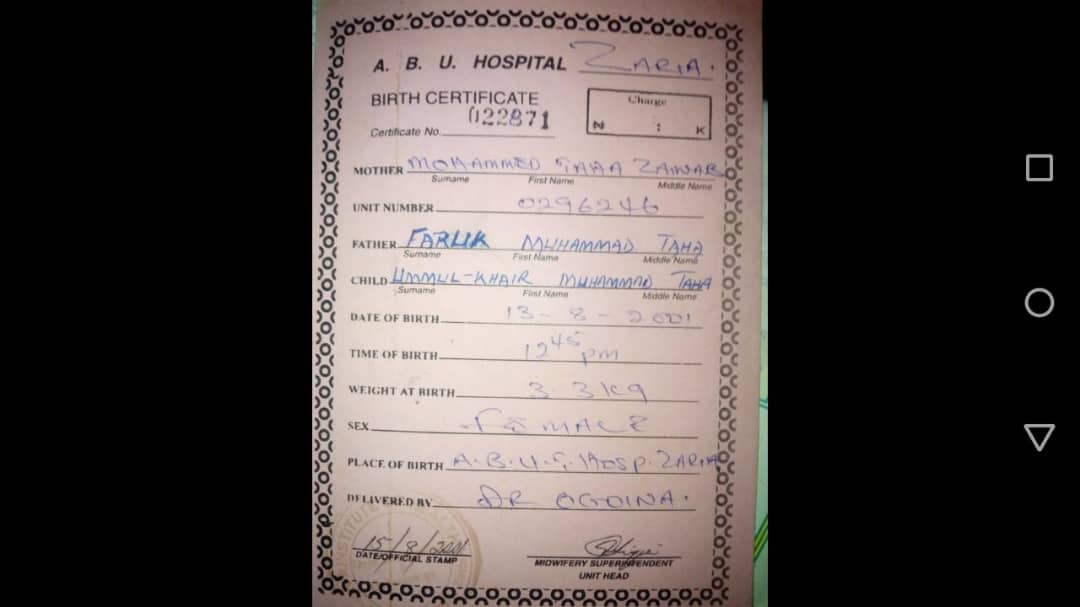 A. B. U. HOSPITAL ZARIA.
BIRTH CERTIFICATE
Charge
Certificate No. 022871
N : K
MOTHER MOHAMMED TAHA ZAINAB
Surname First Name Middle Name
UNIT NUMBER 0296246
FATHER FARUK MUHAMMAD TAHA
Surname First Name Middle Name
CHILD UMMUL-KHAIR MUHAMMAD TAHA
Surname First Name Middle Name
DATE OF BIRTH 13-8-2001
TIME OF BIRTH 12 45 pm
WEIGHT AT BIRTH 3.3kg
SEX FEMALE
PLACE OF BIRTH A.B.U. Hosp. ZARIA
DELIVERED BY DR OGOINA.
15/8/2001
DATE/OFFICIAL STAMP
MIDWIFERY SUPERINTENDENT
UNIT HEAD